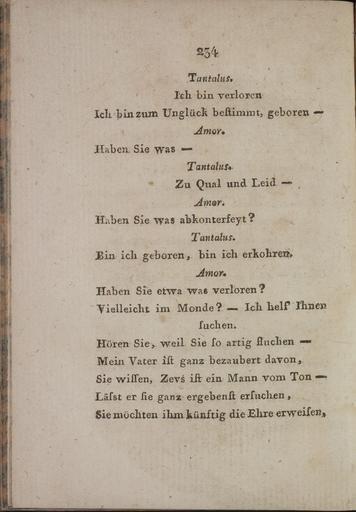 234
Tantalus.
Ich bin verloren
Ich bin zum Unglück beſtimmt, geboren —
Amor.
Haben Sie was —
Tantalus.
Zu Qual und Leid —
Amor.
Haben Sie was abkonterfeyt?
Tantalus.
Bin ich geboren, bin ich erkohren,
Amor.
Haben Sie etwa was verloren?
Vielleicht im Monde? — Ich helf Ihnen
ſuchen.
Hören Sie, weil Sie ſo artig fluchen —
Mein Vater iſt ganz bezaubert davon,
Sie wiſſen, Zevs iſt ein Mann vom Ton —
Läſst er ſie ganz ergebenſt erſuchen,
Sie möchten ihm künftig die Ehre erweiſen,